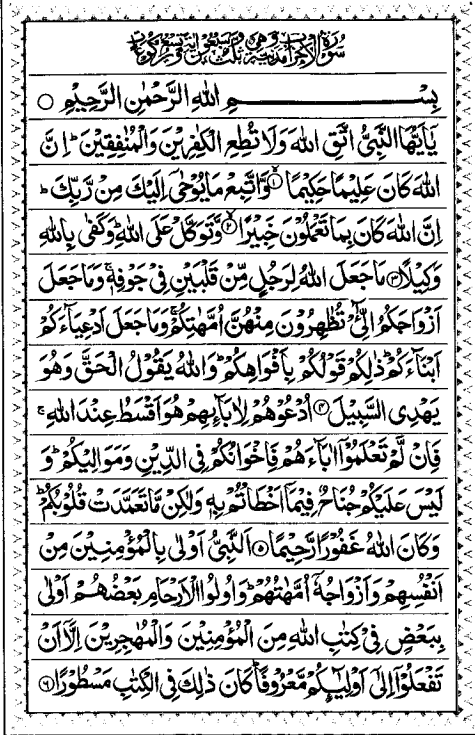 سُوۡرَةُ الۡاَحۡزَابِ مَدَنِيَّةٌ وَّهِيَ ثَلٰثٌ وَّسَبۡعُوۡنَ اٰيَةً وَّتِسۡعُ رُكُوۡعَاتٍ
بِسۡمِ اللهِ الرَّحۡمٰنِ الرَّحِيۡمِ ○
يٰۤاَيُّهَا النَّبِيُّ اتَّقِ اللهَ وَلَا تُطِعِ الۡكٰفِرِيۡنَ وَالۡمُنٰفِقِيۡنَ ؕ اِنَّ
اللهَ كَانَ عَلِيۡمًا حَكِيۡمًا ۙ﴿۱﴾ وَّاتَّبِعۡ مَا يُوۡحٰۤى اِلَيۡكَ مِنۡ رَّبِّكَ ؕ
اِنَّ اللهَ كَانَ بِمَا تَعۡمَلُوۡنَ خَبِيۡرًا ۙ﴿۲﴾ وَّتَوَكَّلۡ عَلَى اللهِ ؕ وَكَفٰى بِاللهِ
وَكِيۡلًا ﴿۳﴾ مَا جَعَلَ اللهُ لِرَجُلٍ مِّنۡ قَلۡبَيۡنِ فِيۡ جَوۡفِهٖ ۚ وَمَا جَعَلَ
اَزۡوَاجَكُمُ الّٰٓـِٔيۡ تُظٰهِرُوۡنَ مِنۡهُنَّ اُمَّهٰتِكُمۡ ۚ وَمَا جَعَلَ اَدۡعِيَآءَكُمۡ
اَبۡنَآءَكُمۡ ؕ ذٰلِكُمۡ قَوۡلُكُمۡ بِاَفۡوَاهِكُمۡ ؕ وَاللهُ يَقُوۡلُ الۡحَقَّ وَهُوَ
يَهۡدِي السَّبِيۡلَ ﴿۴﴾ اُدۡعُوۡهُمۡ لِاٰبَآئِهِمۡ هُوَ اَقۡسَطُ عِنۡدَ اللهِ ۚ
فَاِنۡ لَّمۡ تَعۡلَمُوۡۤا اٰبَآءَهُمۡ فَاِخۡوَانُكُمۡ فِي الدِّيۡنِ وَمَوَالِيۡكُمۡ ؕ وَ
لَيۡسَ عَلَيۡكُمۡ جُنَاحٌ فِيۡمَاۤ اَخۡطَاۡتُمۡ بِهٖ وَلٰكِنۡ مَّا تَعَمَّدَتۡ قُلُوۡبُكُمۡ ؕ
وَكَانَ اللهُ غَفُوۡرًا رَّحِيۡمًا ﴿۵﴾ اَلنَّبِيُّ اَوۡلٰى بِالۡمُؤۡمِنِيۡنَ مِنۡ
اَنۡفُسِهِمۡ وَاَزۡوَاجُهٗۤ اُمَّهٰتُهُمۡ ؕ وَاُولُوا الۡاَرۡحَامِ بَعۡضُهُمۡ اَوۡلٰى
بِبَعۡضٍ فِيۡ كِتٰبِ اللهِ مِنَ الۡمُؤۡمِنِيۡنَ وَالۡمُهٰجِرِيۡنَ اِلَّاۤ اَنۡ
تَفۡعَلُوۡۤا اِلٰۤى اَوۡلِيٰٓئِكُمۡ مَّعۡرُوۡفًا ؕ كَانَ ذٰلِكَ فِي الۡكِتٰبِ مَسۡطُوۡرًا ﴿۶﴾